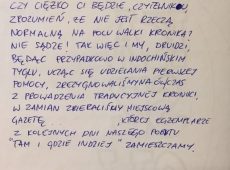 CZY CIĘŻKO CI BĘDZIE, CZYTELNIKU,
ZROZUMIEĆ, ŻE NIE JEST RZECZĄ
NORMALNĄ NA POLU WALKI KRONIKA?
NIE SĄDZĘ! TAK WIĘC I MY, DRUHZI,
BĘDĄC PRZYPADKOWO W INDOCHIŃSKIM
TYGLU, UCZĄC SIĘ UDZIELANIA PIERWSZEJ
POMOCY, ZREZYGNOWALIŚMY WÓWCZAS
Z PROWADZENIA TRADYCYJNEJ KRONIKI,
W ZAMIAN ZBIERALIŚMY MIEJSCOWĄ
GAZETĘ ........, KTÓREJ EGZEMPLARZE
Z KOLEJNYCH DNI NASZEGO POBYTU
"TAM I GDZIE INDZIEJ" ZAMIESZCZAMY.